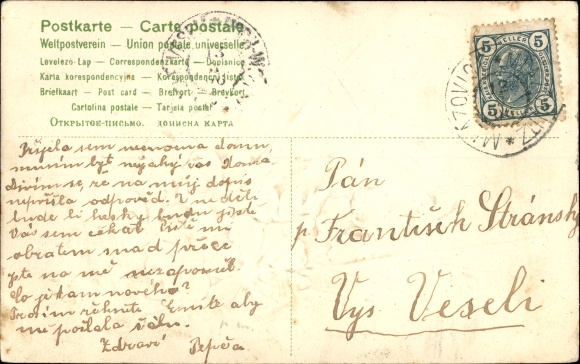 Postkarte — Carte postale
Weltpostverein — Union postale universelle
Levelező-Lap — Correspondenzkarte — Dopisnice
Karta korespondencyjna — Korespondenční lístek
Briefkaart — Post card — Brefkort — Brevkort
Cartolina postale — Tarjeta postal
ОТКРЫТОЕ-ПИСЬМО. ДОПИСНА КАРТА
5 HELLER 5
5 5
Přijela sem
musím být nějaký čas doma.
Divím se, že na můj dopis
nepřišla odpověď. V neděli
bude li hezky budu jistě
Vás sem čekat
obratem
jste na mě nezapoměl.
Co je kam nového?
Prosím řekněte Emile aby
mi poslala
Zdraví Pepča
Pán
p František Stránský
Vys Veselí